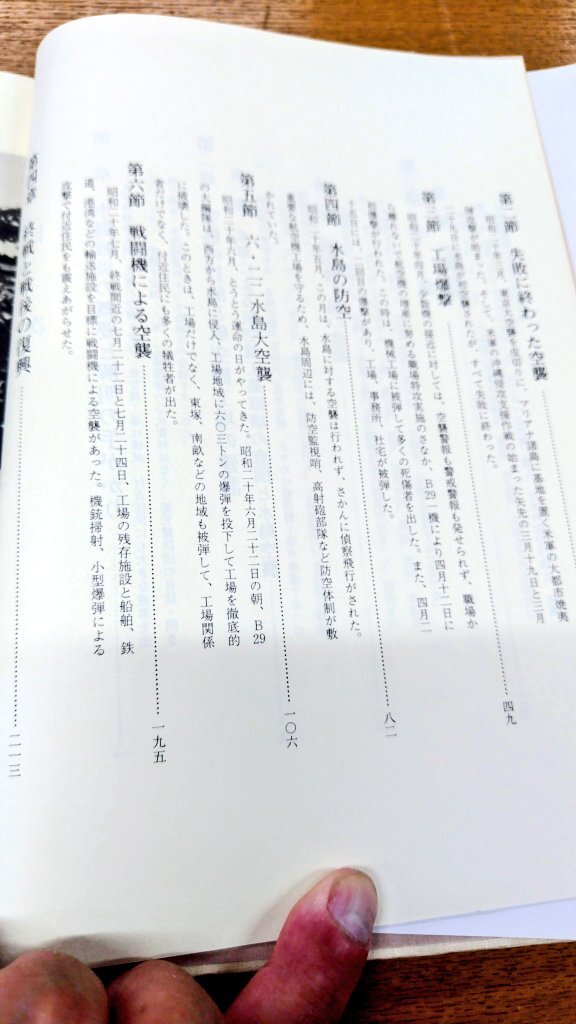 第二節　失敗に終わった空襲
昭和二十年三月、東京大空襲を皮切りに、マリアナ諸島に基地を置く米軍の大都市焼夷
弾空襲が始まった。そして、米軍の沖縄侵攻支援作戦の始まった矢先の三月十九日と三月
二十九日に水島が初空襲されたが、すべて失敗に終わった。
……四九
第三節　工場爆撃
昭和二十年四月、少数機の接近に対しては、空襲警報も警戒警報も発せられず、職場か
ら離れないで航空機の増産に努める職場特攻実施のさなか、B29一機により四月十二日に
初爆撃が行われた。この時は、機械工場に被弾して多くの死傷者を出した。また、四月二
十五日には、二回目の爆撃があり、工場、事務所、社宅が被弾した。
……八二
第四節　水島の防空
昭和二十年五月、この月は、水島に対する空襲は行われず、さかんに偵察飛行がされた。
重要な航空機工場を守るため、水島周辺には、防空監視哨、高射砲部隊など防空体制が敷
かれていた。
……一〇六
第五節　六・二二水島大空襲
昭和二十年六月、とうとう運命の日がやってきた。昭和二十年六月二十二日の朝、B29
の大編隊は、西方から水島に侵入、工場地域に六〇三トンの爆弾を投下して工場を徹底的
に破壊した。このときは、工場だけでなく、東塚、南畝などの地域も被弾して、工場関係
者だけでなく、付近住民にも多くの犠牲者が出た。
……一九五
第六節　戦闘機による空襲
昭和二十年七月、終戦間近の七月二十二日と七月二十四日、工場の残存施設と船舶、鉄
道、港湾などの輸送施設を目標に戦闘機による空襲があった。機銃掃射、小型爆弾による
攻撃で付近住民をも震えあがらせた。
第四章　終戦と戦後の復興……二一三